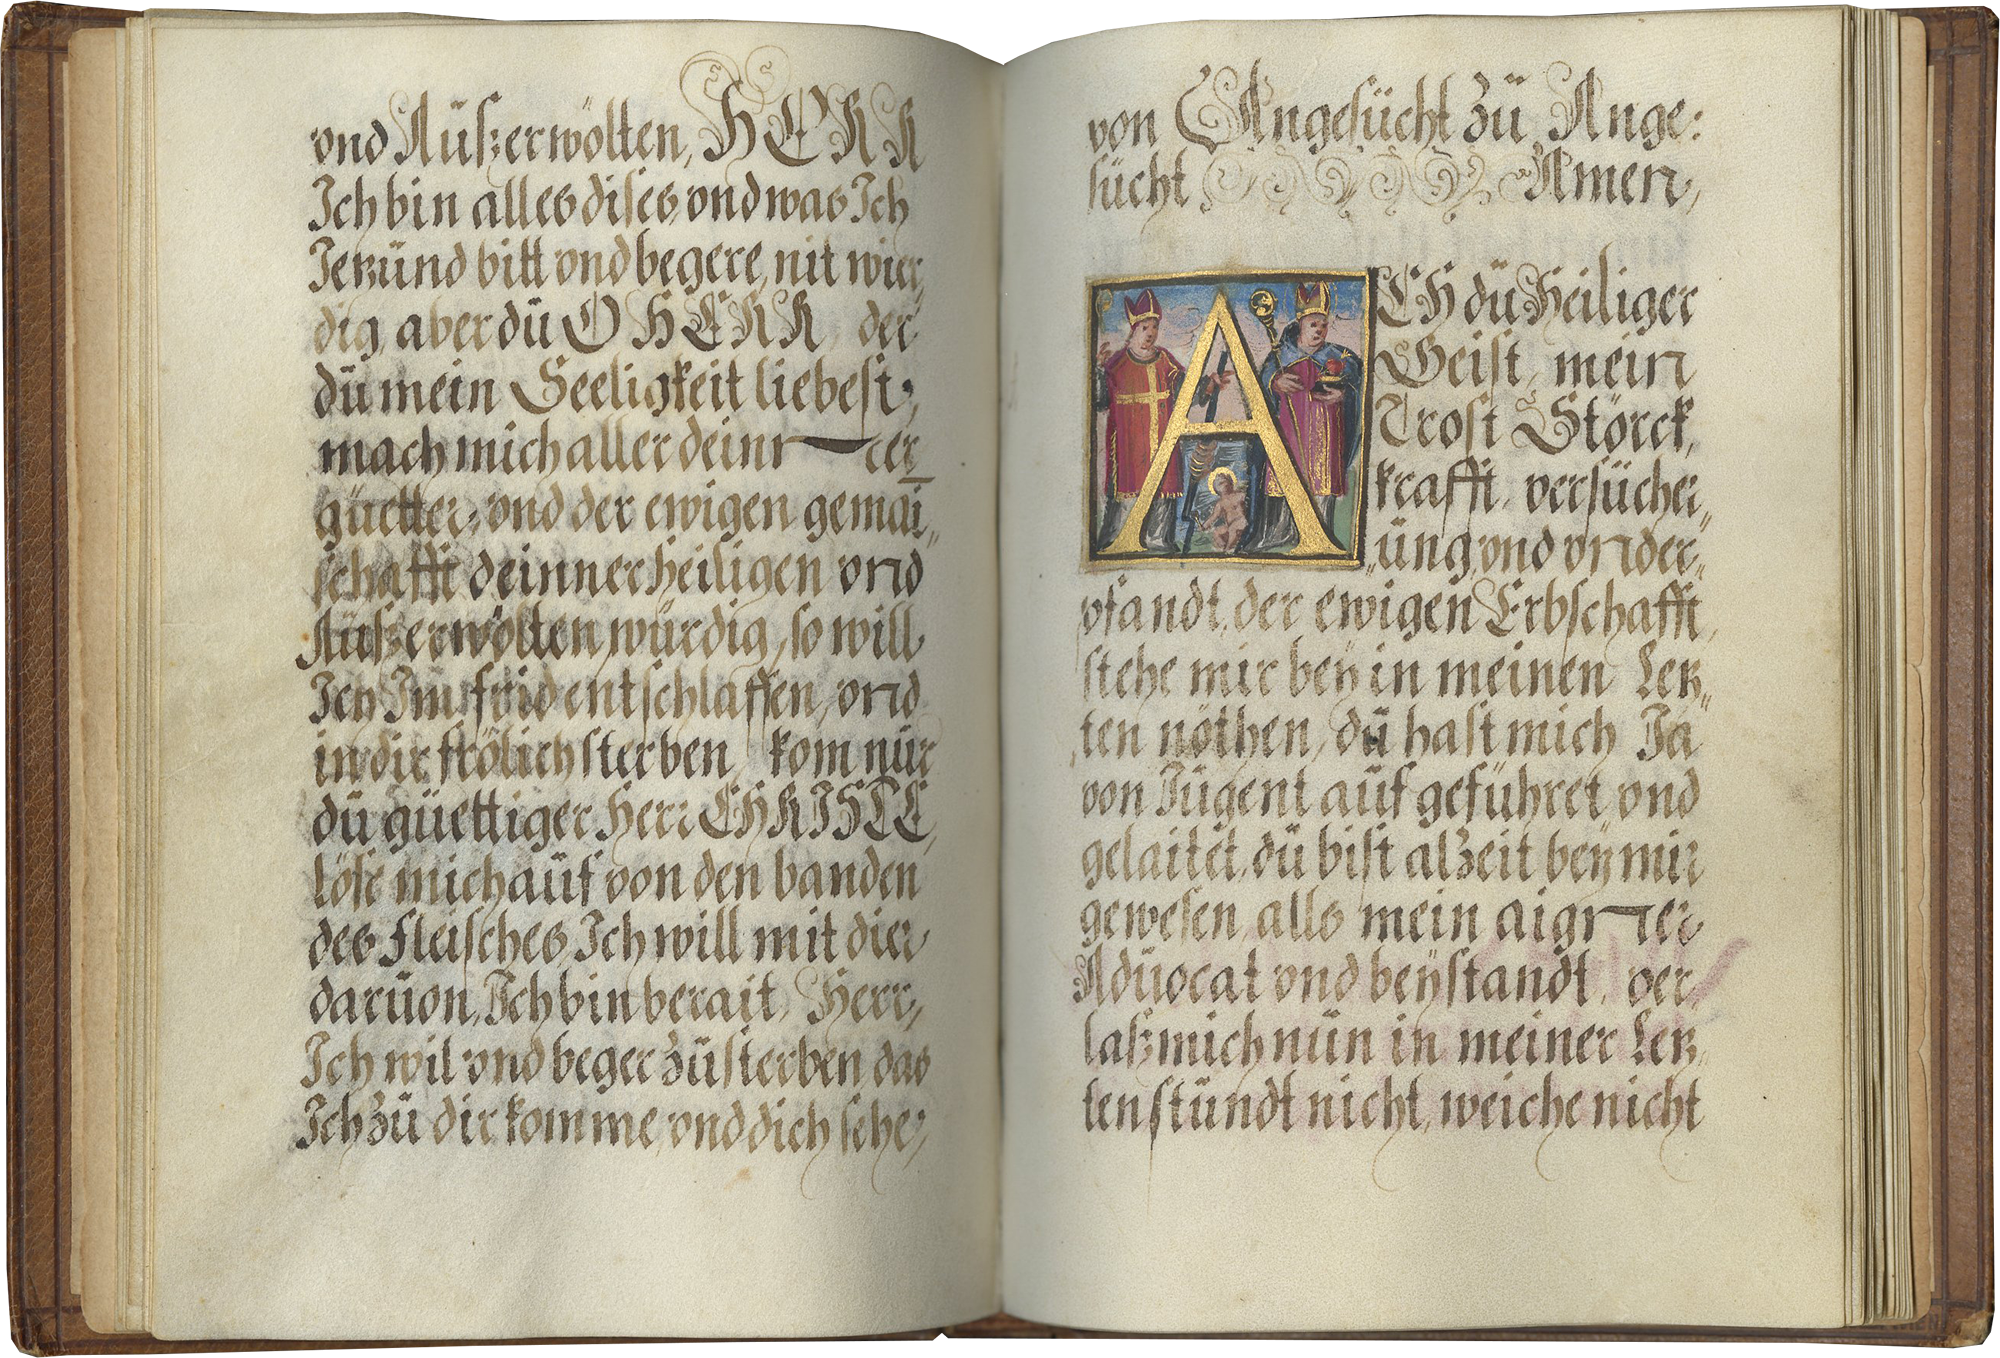 vnd Aüßerwölten, HERR
Ich bin alles dises, vnd was Ich
Jetzünd bitt vnd begere, nit wier„
dig, aber dü O HERR der
dü mein Seeligkeit liebest,
mach mich aller deinr ter
güetter, vnd der ewigen gemai„
schafft deinner heiligen vnd
Aüßerwölten, würdig, so will
Ich Im frid entschlaffen, vnd
in dir frölich sterben, kom nür
dü güettiger Herr CHRISTE,
löse mich aüf von den banden
des fleisches, Ich will mit dier
darüon, Ich bin berait, Herr,
Ich wil vnd beger zü sterben, das
Ich zü dir komme, vnd dich sehe,
von Angesücht zü Ange:
sücht Amen,
ACH dü Heiliger
Geist, mein
Trost Störck,
krafft, versücher„
„üng, vnd vnder„
pfandt, der ewigen Erbschafft,
stehe mir beÿ in meinen Letz„
ten nöthen, dü hast mich Ja
von Jügent aüf geführet, vnd
gelaitet, dü bist alzeit beÿ mir
gewesen, alls mein aigner
Adüocat vnd beÿstandt, ver„
laß mich nün in meiner Letz„
ten stündt nicht, weiche nicht